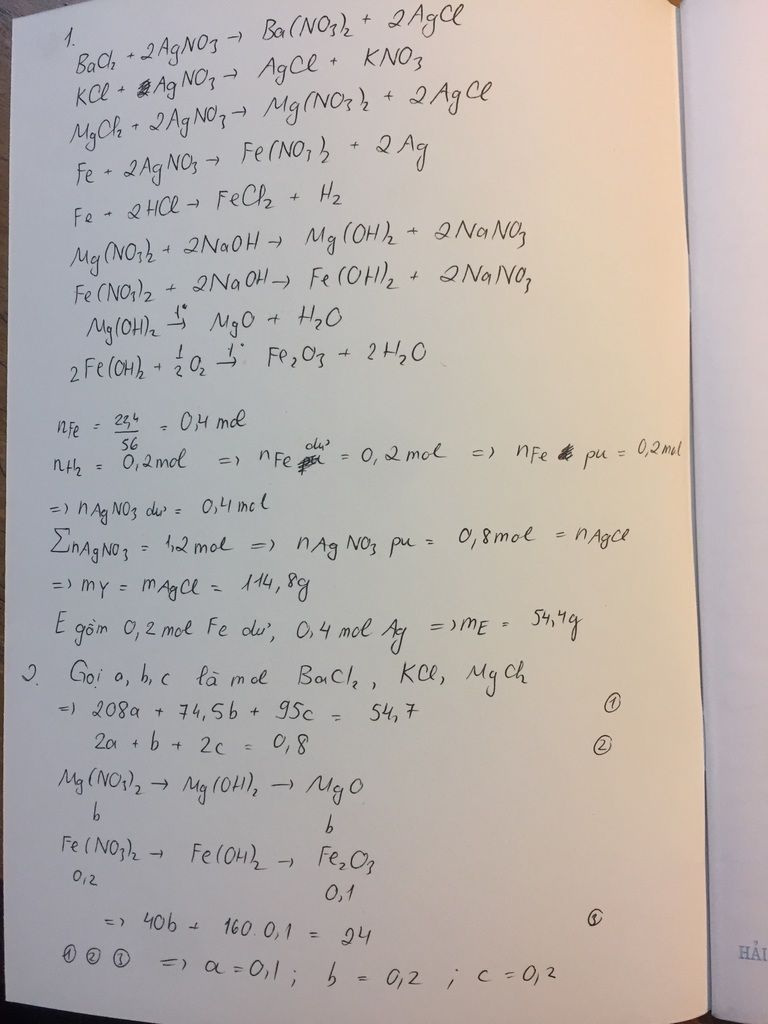 1.
BaCl₂ + 2AgNO₃ → Ba(NO₃)₂ + 2AgCl
KCl + AgNO₃ → AgCl + KNO₃
MgCl₂ + 2AgNO₃ → Mg(NO₃)₂ + 2AgCl
Fe + 2AgNO₃ → Fe(NO₃)₂ + 2Ag
Fe + 2HCl → FeCl₂ + H₂
Mg(NO₃)₂ + 2NaOH → Mg(OH)₂ + 2NaNO₃
Fe(NO₃)₂ + 2NaOH → Fe(OH)₂ + 2NaNO₃
Mg(OH)₂ →(1°) MgO + H₂O
2Fe(OH)₂ + 1/2 O₂ →(1°) Fe₂O₃ + 2H₂O
nFe = 22,4/56 = 0,4 mol
nH₂ = 0,2mol => nFe dư = 0,2mol => nFe pu = 0,2mol
=> nAgNO₃ dư = 0,4mol
ΣnAgNO₃ = 1,2mol => nAgNO₃ pu = 0,8mol = nAgCl
=> mY = mAgCl = 114,8g
E gồm 0,2mol Fe dư, 0,4mol Ag => mE = 54,4g
2. Gọi a, b, c là mol BaCl₂, KCl, MgCl₂
=> 208a + 74,5b + 95c = 54,7 ①
2a + b + 2c = 0,8 ②
Mg(NO₃)₂ → Mg(OH)₂ → MgO
b b
Fe(NO₃)₂ → Fe(OH)₂ → Fe₂O₃
0,2 0,1
=> 40b + 160.0,1 = 24 ③
① ② ③ => a = 0,1 ; b = 0,2 ; c = 0,2
HẢI